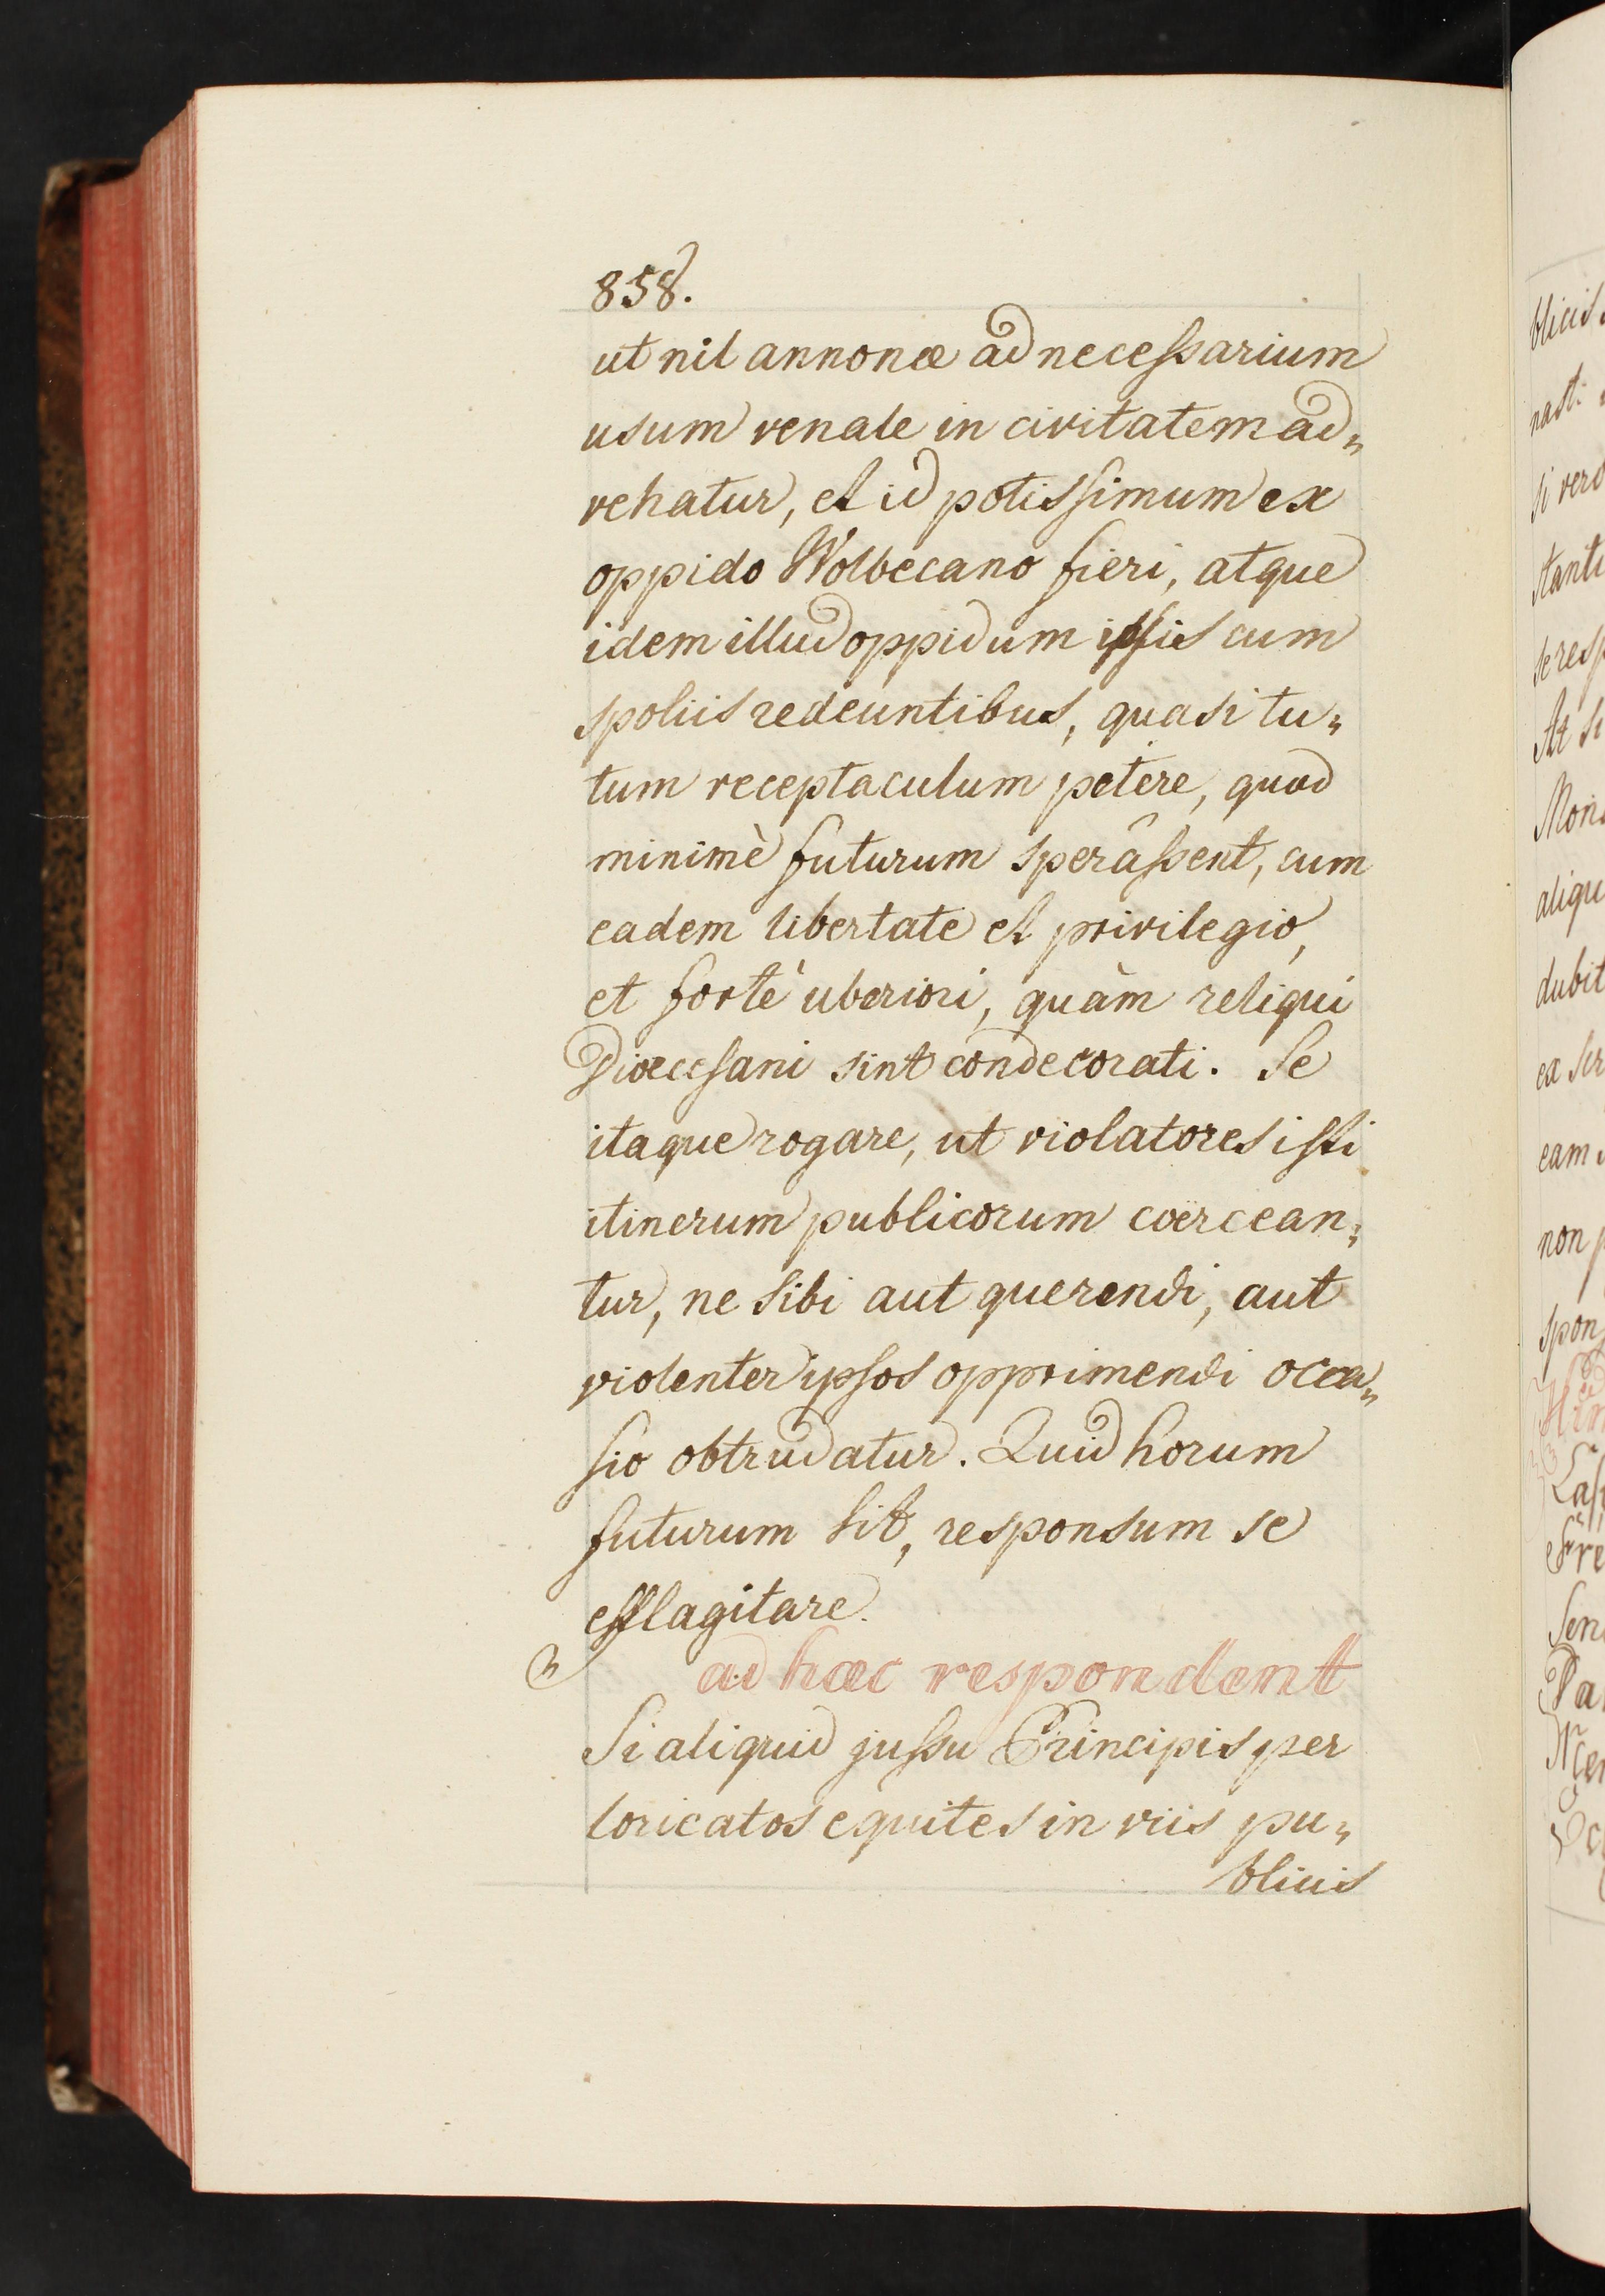 858.
ut nil annonæ ad necessarium
usum venale in civitatem ad„
vehatur, et id potissimum ex
oppido Wolbecano fieri, atque
idem illud oppidum ipsis cum
spoliis redeuntibus, quasi tu„
tum receptaculum petere, quod
minimè futurum sperâssent, cum
eadem libertate et privilegio,
et fortè uberiori, quàm reliqui
Diœcesani sint condecorati. Se
itaque rogare, ut violatores isti
itinerum publicorum coërcean„
tur, ne sibi aut querendi, aut
violenter ipsos opprimendi occa„
sio obtrudatur. Quid horum
futurum sit, responsum se
efflagitare.
ad hæc respondent
Si aliquid jussu Principis per
loricatos equites in viis pu„
blicis
blicis
nast:
si vero
stanti
se resp
At si
Mon
aliqu
dubit
ea ser
eam
non p
spon